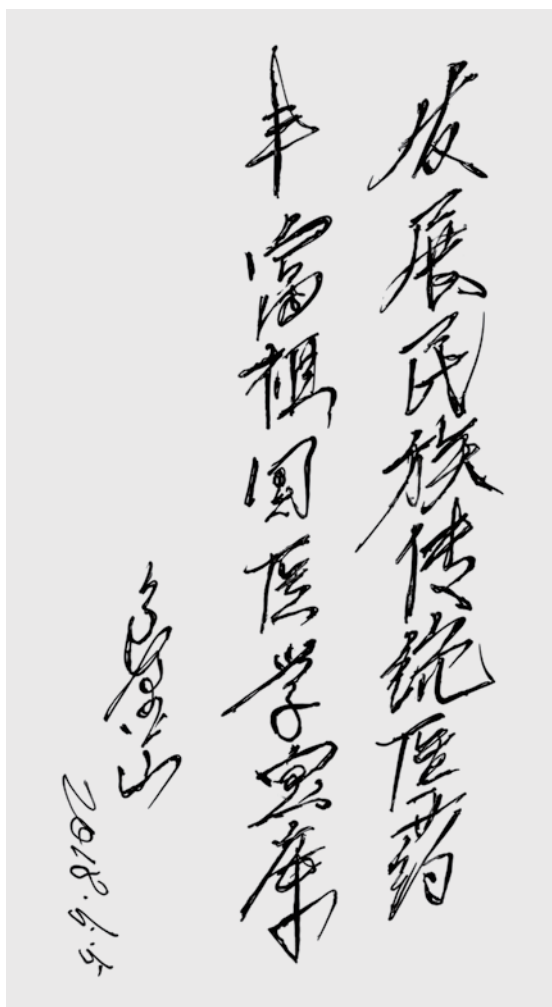 发展民族传统医药
丰富祖国医学宝库
山
2018.6.5